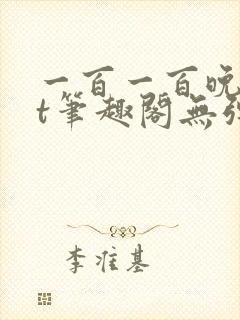 一百一百晚
t筆趣閣無彈
李准基